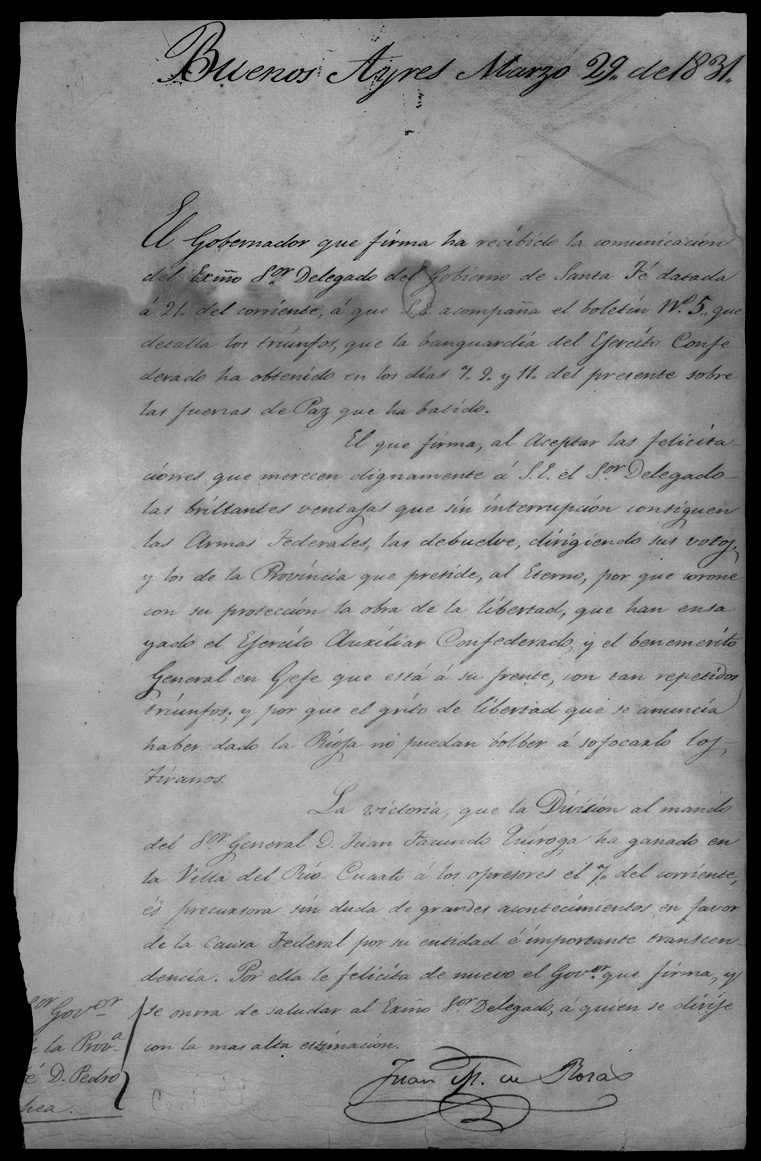 Buenos Ayres Marzo 29. de 1831.
El Gobernador que firma ha recibido la comunicacion
del Exmo Sor. Delegado del Gobierno de Santa Fé datada
á 21. del corriente, á que acompaña el boletin No. 5. que
detalla los triunfos, que la banguardia del Ejercito Confe
derado ha obtenido en los dias 7. 9. y 11. del presente sobre
las fuerzas de Paz que ha batido.
El que firma, al aceptar las felicita-
ciones que merecen dignamente á S.E. el Sor. Delegado
las brillantes ventajas que sin interrupcion consiguen
las Armas Federales, las debuelve, dirigiendo sus votos,
y los de la Provincia que preside, al Eterno, por que corone
con su proteccion la obra de la libertad, que han ensa
yado el Ejercito Auxiliar Confederado, y el benemerito
General en Gefe que está á su frente, con tan repetidos
triunfos; y por que el grito de libertad que se anuncia
haber dado la Rioja no puedan bolber á sofocarlo los
tiranos.
La victoria, que la Division al mando
del Sor. General D. Juan Facundo Quiroga ha ganado en
la Villa del Rio Cuarto á los opresores el 7. del corriente,
és precursora sin duda de grandes acontecimientos en favor
de la Causa Federal por su entidad é importante transcen
dencia. Por ella le felicita de nuevo el Govor. que firma, y
se onrra de saludar al Exmo Sor. Delegado, á quien se dirije
con la mas alta estimacion.
Juan M. de Rosas
or Govor.
la Prova.
é D. Pedro
hea.